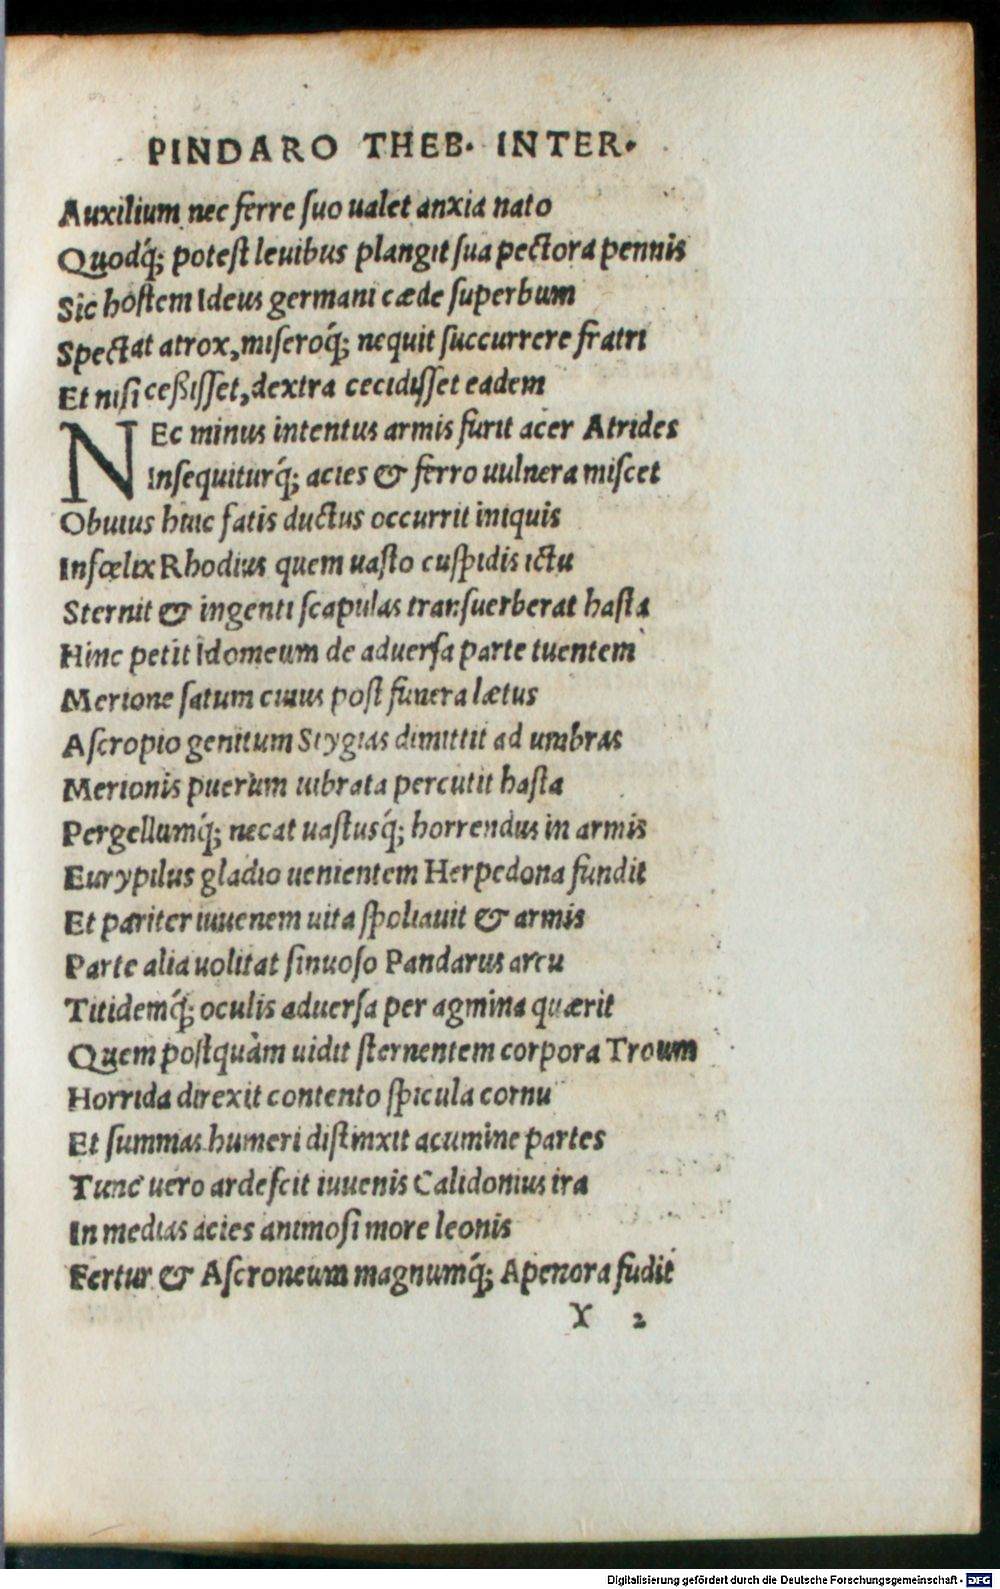 PINDARO THEB. INTER.
Auxilium nec ferre ſuo ualet anxia nato
Quodq́; poteſt leuibus plangit ſua pectora pennis
Sic hoſtem Ideus germani cæde ſuperbum
Spectat atrox, miſeroq́; nequit ſuccurrere fratri
Et niſi ceßiſſet, dextra cecidiſſet eadem
NEc minus intentus armis furit acer Atrides
Inſequiturq́; acies & ferro uulnera miſcet
Obuius huic fatis ductus occurrit iniquis
Infœlix Rhodius quem uaſto cuſpidis ictu
Sternit & ingenti ſcapulas tranſuerberat haſta
Hinc petit Idomeum de aduerſa parte tuentem
Merione ſatum cuius poſt funera lætus
Aſcropio genitum Stygias dimittit ad umbras
Merionis puerum uibrata percutit haſta
Pergellumq́; necat uaſtusq́; horrendus in armis
Eurypilus gladio uenientem Herpedona fundit
Et pariter iuuenem uita ſpoliauit & armis
Parte alia uolitat ſinuoſo Pandarus arcu
Titidemq́; oculis aduerſa per agmina quærit
Quem poſtquàm uidit ſternentem corpora Troum
Horrida direxit contento ſpicula cornu
Et ſummas humeri diſtinxit acumine partes
Tunc uero ardeſcit iuuenis Calidonius ira
In medias acies animoſi more leonis
Fertur & Aſcroneum magnumq́; Apenora fudit
Y 2
Digitalisierung gefördert durch die Deutsche Forschungsgemeinschaft - DFG